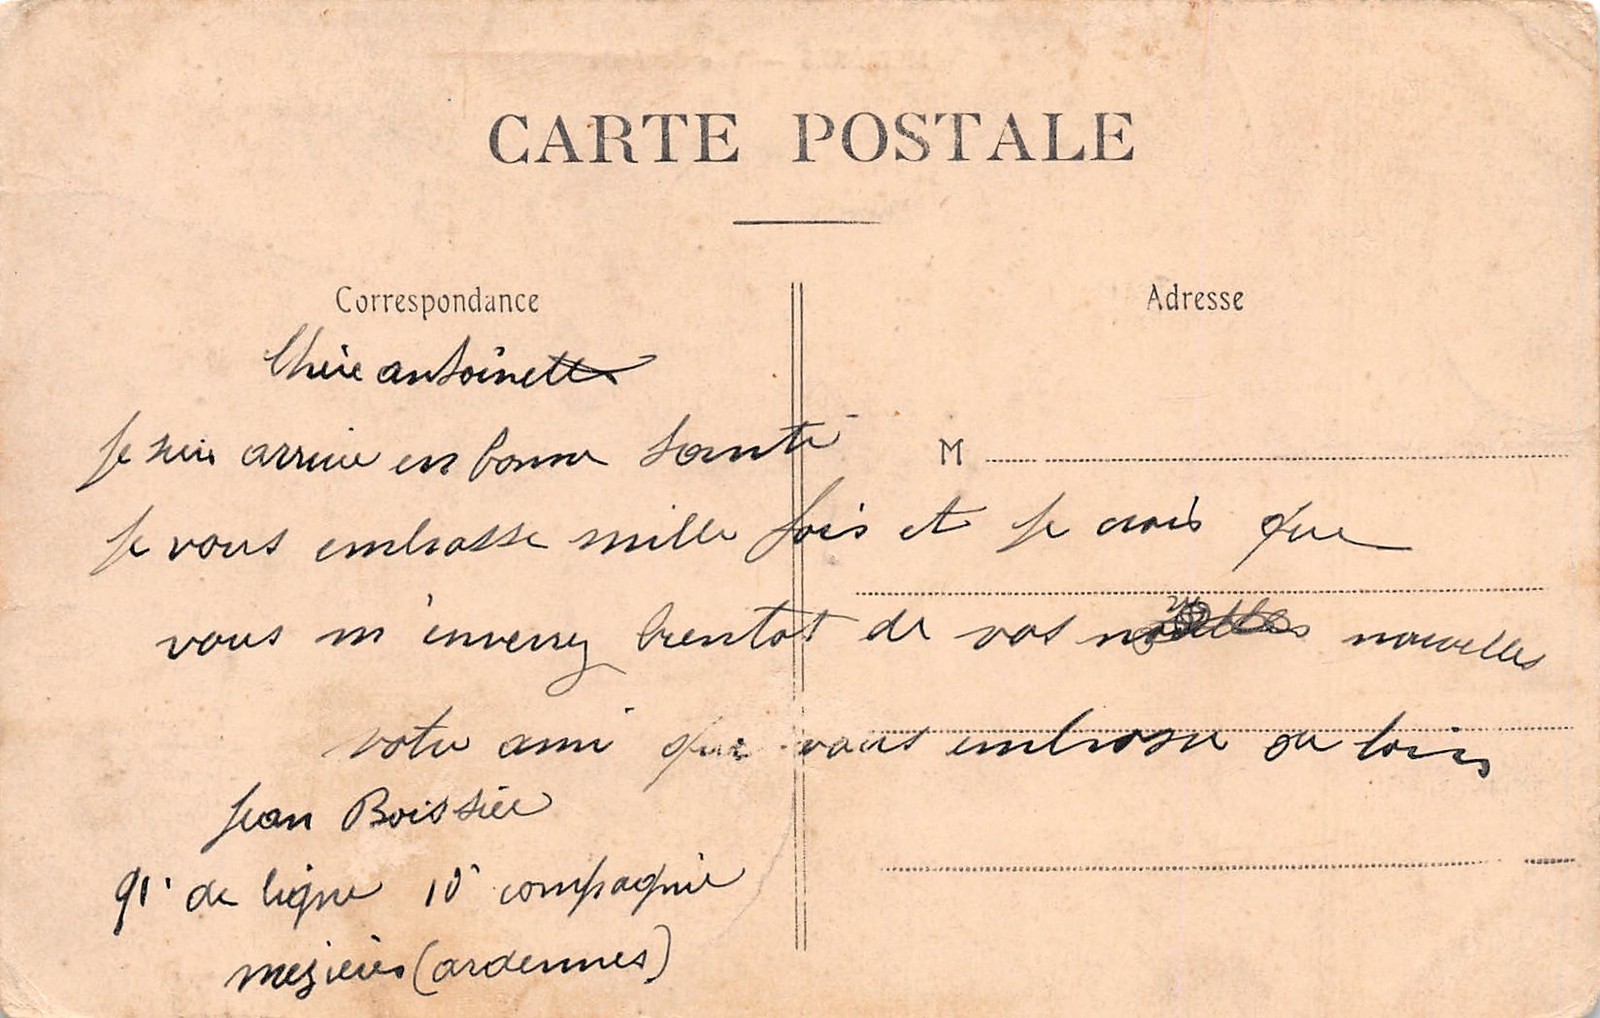 CARTE POSTALE
Correspondance
Adresse
M
Chère antoinette
Je suis arrive en bonne santé
Je vous embrasse mille fois et je crois que
vous m'enverrez bientot de vos nouvelles
votre ami qui vous embrasse au loin
Jean Boissier
91e de ligne 10e compagnie
mezières (ardennes)